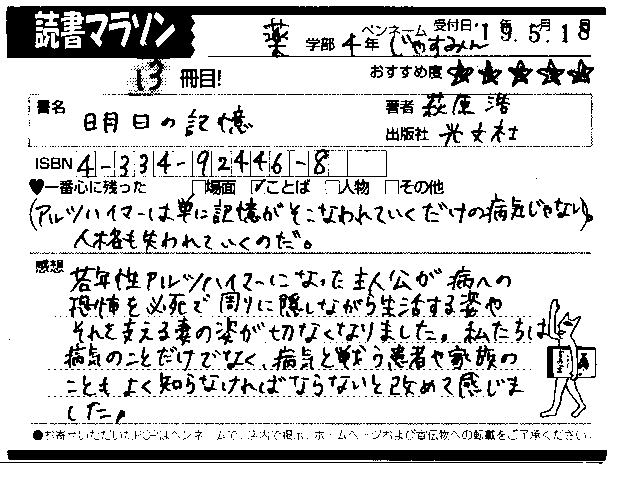 読書マラソン
薬 学部 4年 ペンネーム じゃすみん 受付日 '19年5月18日
13 冊目! おすすめ度 ★★★★★
書名 明日の記憶 著者 荻原浩
出版社 光文社
ISBN 4-334-92446-8
♥一番心に残った □場面 ☑ことば □人物 □その他
(アルツハイマーは単に記憶がそこなわれていくだけの病気じゃない。)
人格も失われていくのだ。
感想 若年性アルツハイマーになった主人公が病への
恐怖を必死で周りに隠しながら生活する姿や
それを支える妻の姿が切なくなりました。私たちは
病気のことだけでなく、病気と戦う患者や家族の
こともよく知らなければならないと改めて感じま
した。
●お寄せいただいたPOPはペンネームで、店内で掲示、ホームページおよび宣伝物への転載をご了承ください。